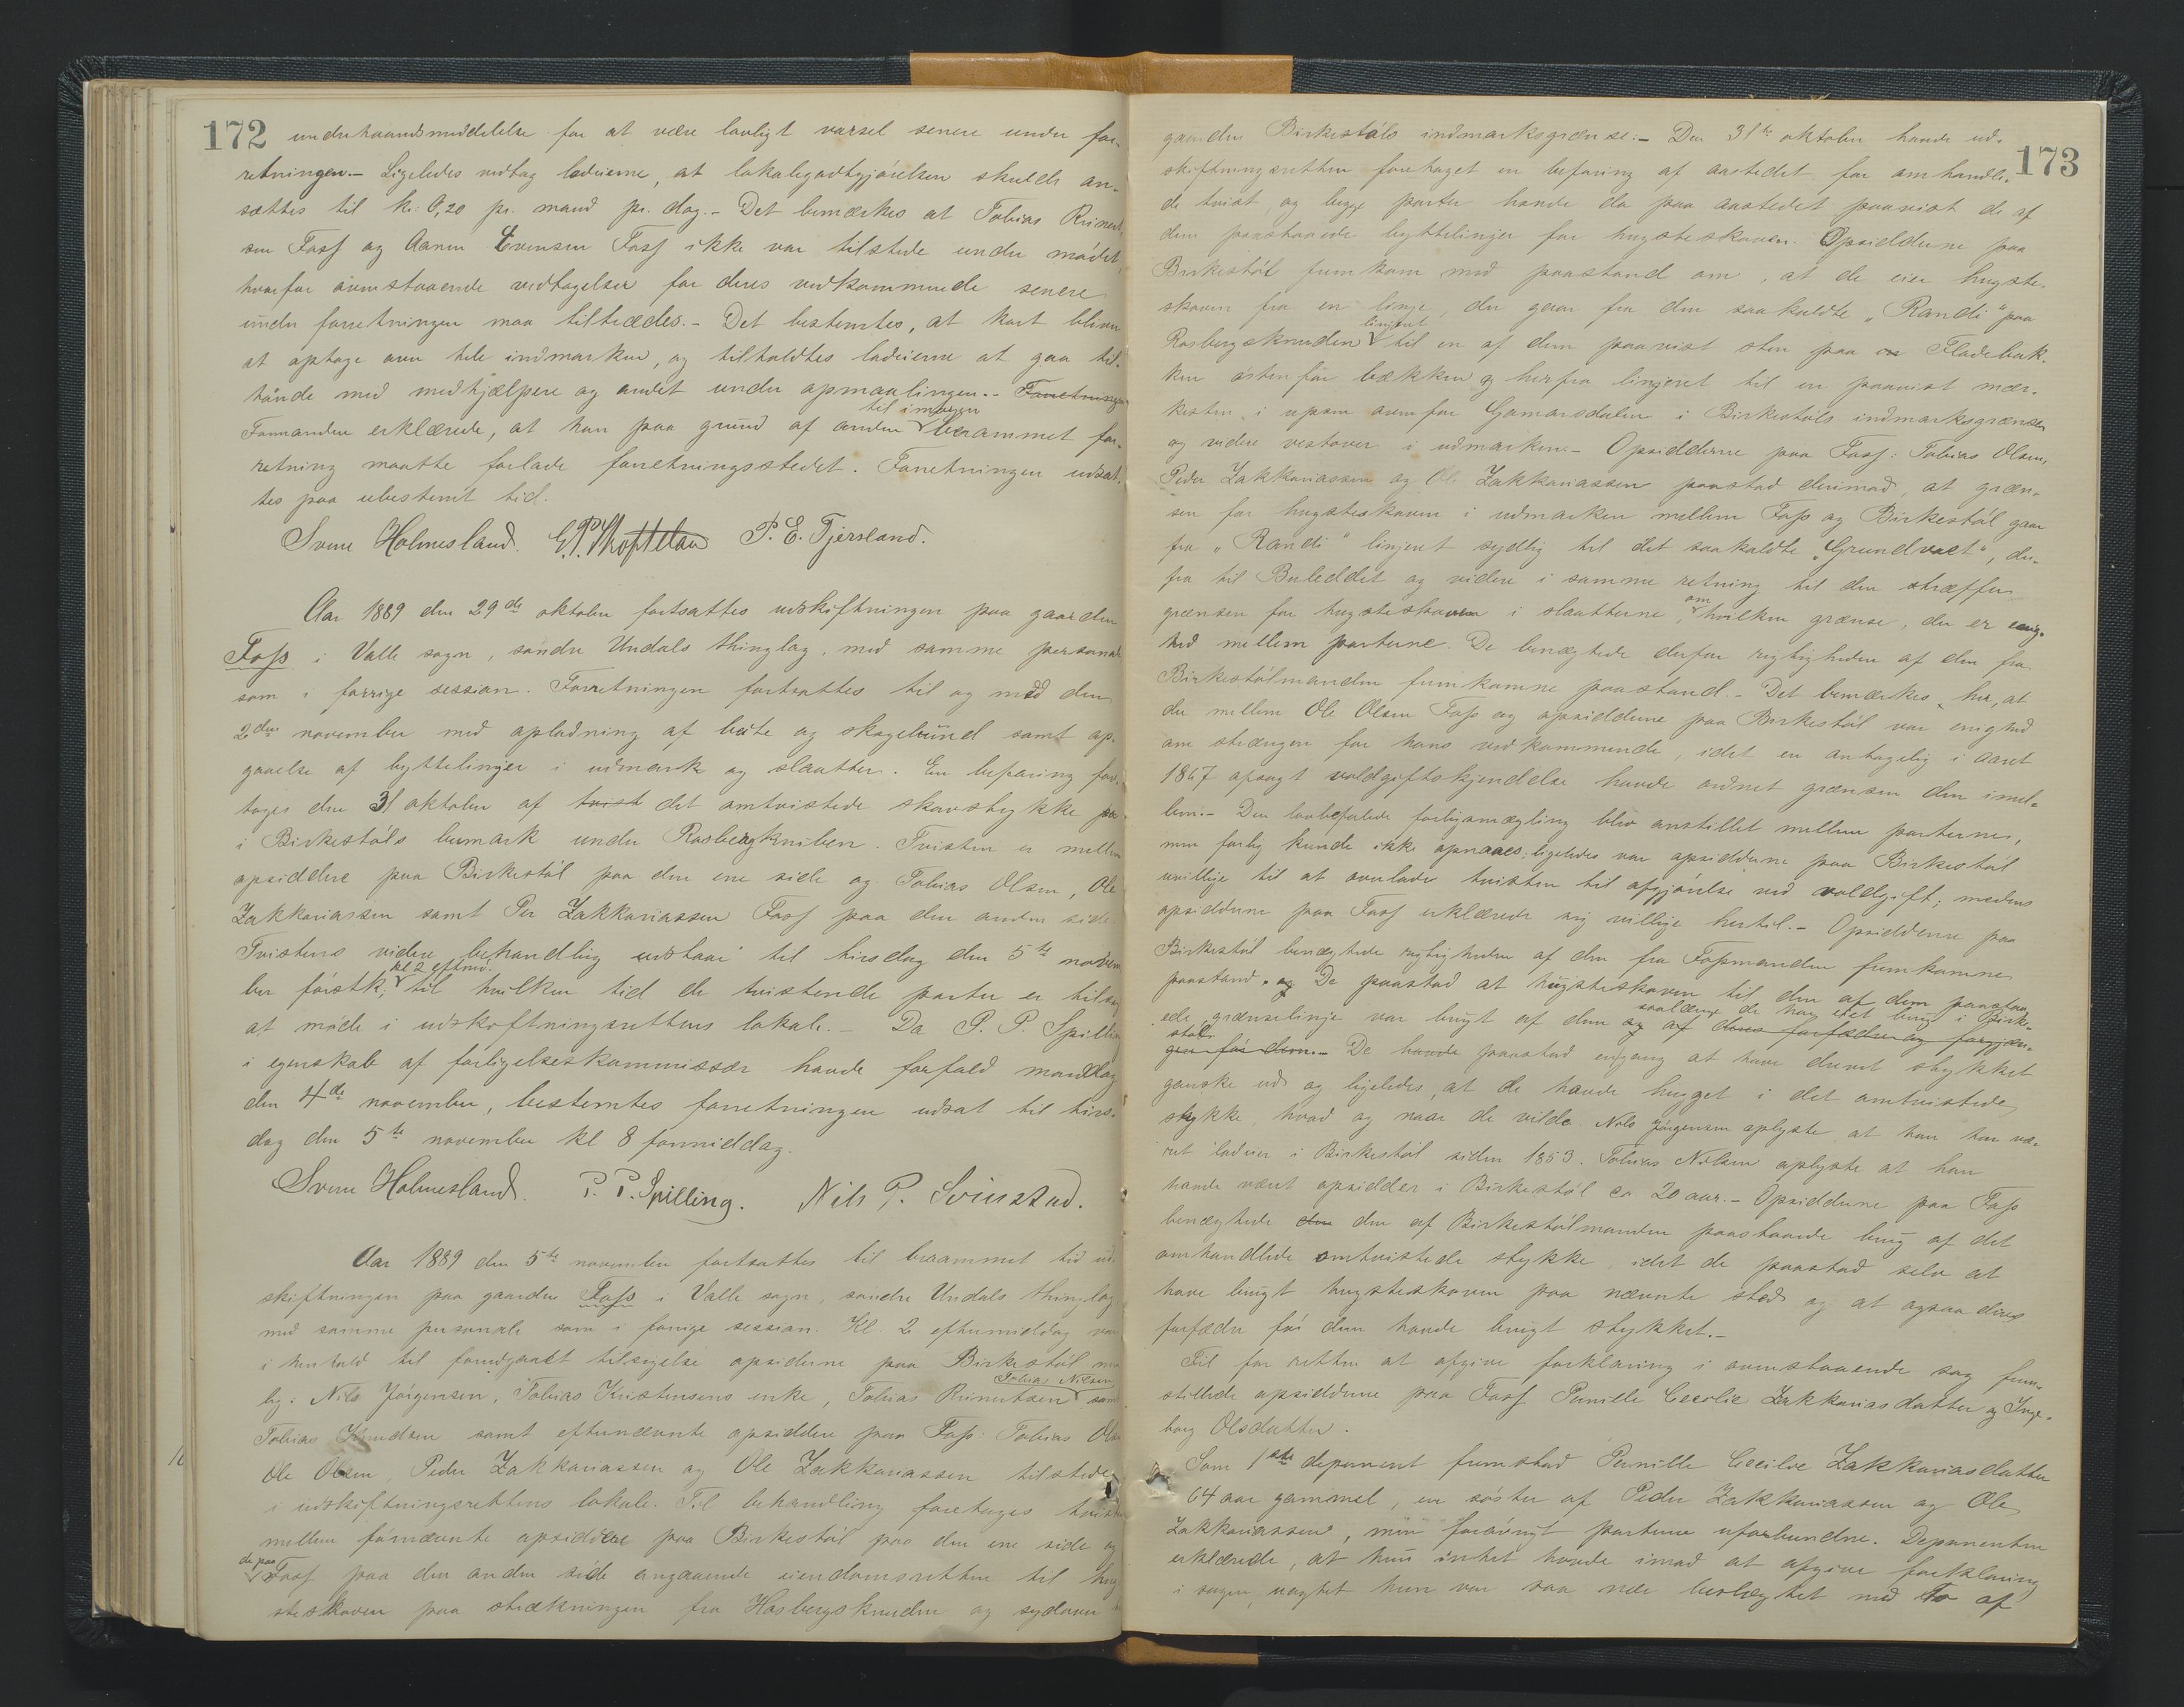 172 underhaandsmeddelelse for at være lovligt varsel senere under for-
retningen.- Ligeledes vedtog lodeierne, at lokalegodtgjörelsen skulde an-
sættes til kr. 0,20 pr. mand pr. dag.- Det bemærkes at Tobias Reinert-
sen Foss og Aanen Evensen Foss ikke var tilstede under mödet,
hvorfor ovenstaaende vedtagelser for deres vedkommende senere
under forretningen maa tiltrædes.- Det bestemtes, at kart bliver
at optage over hele indmarken, og tilholdtes lodeierne at gaa til-
haande med medhjælpere og andet under opmaalingen.- Forretningen
Formanden erklærede, at han paa grund af anden til imorgen berammet for-
retning maatte forlade forretningsstedet. Forretningen udsat-
tes paa ubestemt tid.
Sven Holmesland. P. E. Tjersland.
Aar 1889 den 29de oktober fortsattes udskiftningen paa gaarden
Foss i Valle sogn, söndre Undals thinglag, med samme personale
som i forrige session. Forretningen fortsattes til og med den
2den november med oplodning af beite og skogebund samt op-
gaaelse af byttelinjer i udmark og slaatter. En befaring fore-
toges den 31 oktober af tvist det omtvistede skovstykke paa
i Birkestöls bumark under Rosbergkniben. Tvisten er mellem
opsiddere paa Birkestöl paa den ene side og Tobias Olsen, Ole
Zakkariassen samt Per Zakkariassen Foss paa den anden side.
Tvistens videre behandling udstaar til tirsdag den 5te novem-
ber förstk. kl 2 efterm. til hvilken tid de tvistende parter er tilsagt
at möde i udskiftningsrettens lokale.- Da P. P. Spilling
i egenskab af forligelseskommissær havde forfald mandag
den 4de november, bestemtes forretningen udsat til tirs-
dag den 5te november kl 8 formiddag.
Sven Holmesland. P. P. Spilling. Nils P. Svinstad.
Aar 1889 den 5te november fortsattes til berammet tid ud-
skiftningen paa gaarden Foss i Valle sogn, söndre Undals thinglag
med samme personale som i forrige session. Kl. 2 eftermiddag var
i henhold til forudgaaet tilsigelse opsiderne paa Birkestöl nem-
lig: Nils Jörgensen, Tobias Kristensens enke, Tobias Reinertsen Tobias Nilsen samt
Tobias Knudsen samt efternævnte opsiddere paa Foss: Tobias Olsen
Ole Olsen, Peder Zakkariassen og Ole Zakkariassen tilstede
i udskiftningsrettens lokale. Til behandling foretoges tvisten
mellem förnævnte opsiddere paa Birkestöl paa den ene side og
de paa Foss paa den anden side angaaende eiendomsretten til hug-
steskoven paa strækningen fra Hosbergsknuden og sydover
173
gaarden Birkestöls indmarksgrænse.- Den 31te oktober havde ud-
skiftningsretten foretaget en befaring af aastedet for omhandle-
de tvist, og begge parter havde da paa aastedet paavist de af
dem paastaaede byttelinjer for hugsteskoven. Opsidderne paa
Birkestöl fremkom med paastand om, at de eier hugste-
skoven fra en linje, der gaar fra den saakaldte „Randi" paa
Rosbergsknuden linjeret til en af dem paavist sten paa en Fladebak-
ken östenför bækken og herfra linjeret til en paavist mær-
kesten i uren ovenfor Gamarsdalen i Birkestöls indmarksgrænse
og videre vestover i udmarken.- Opsidderne paa Foss: Tobias Olsen,
Peder Zakkariassen og Ole Zakkariassen paastod derimod, at græn-
sen for hugsteskoven i udmarken mellem Foss og Birkestöl gaar
fra „Randi" linjeret sydlig til det saakaldte „Grundvaet", der-
fra til Buleddet og videre i samme retning til den træffer
grænsen for hugsteskoven i slaatterne, om hvilken grænse, der er enig-
hed mellem parterne. De benægtede derfor rigtigheden af den fra
Birkestölmanden fremkomne paastand.- Det bemærkes her, at
der mellem Ole Olsen Foss og opsidderne paa Birkestöl var enighed
om strængen for hans vedkommende, idet en antagelig i aaret
1867 afsagt voldgiftskjendelse havde ordnet grænsen dem imel-
lem.- Den lovbefalede forligsmægling blev anstillet mellem parterne,
men forlig kunde ikke opnaaes; ligeledes var opsidderne paa Birkestöl
uvillige til at overlade tvisten til afgjörelse ved voldgift; medens
opsidderne paa Foss erklærede sig villige hertil.- Opsidderne paa
Birkestöl benægtede rigtigheden af den fra Fossmanden fremkomne
paastand. og De paastod at hugsteskoven til den af dem paastaa-
ede grænselinje var brugt af dem saalænge de har eiet brug i Birke- og af deres forfædre og forgjæn-
stöl gere för dem.- De havde paastod engang at have drevet stykket
ganske ud, og ligeledes, at de havde hugget i det omtvistede
stykke, hvad og naar de vilde. Nils Jörgensen oplyste at han har væ-
ret lodeier i Birkestöl siden 1853. Tobias Nilsen oplyste at han
havde været opsidder i Birkestöl ca. 20 aar.- Opsidderne paa Foss
benægtede den den af Birkestölmanden paastaaede brug af det
omhandlede omtvistede stykke, idet de paastod selv at
have brugt hugsteskoven paa nævnte sted og at ogsaa deres
forfædre för dem havde brugt stykket.-
Til for retten at afgive forklaring i ovenstaaende sag frem-
stillede opsidderne paa Foss Pernille Cecilie Zakkariasdatter og Inge-
borg Olsdatter.
Som 1ste deponent fremstod Pernille Cecilie Zakkariasdatter
64 aar gammel, en söster af Peder Zakkariassen og Ole
Zakkariassen, men forövrigt parterne uforbunden. Deponenten
erklærede, at hun intet havde imod at afgive forklaring
i sagen, uagtet hun var saa nær beslægtet med to af